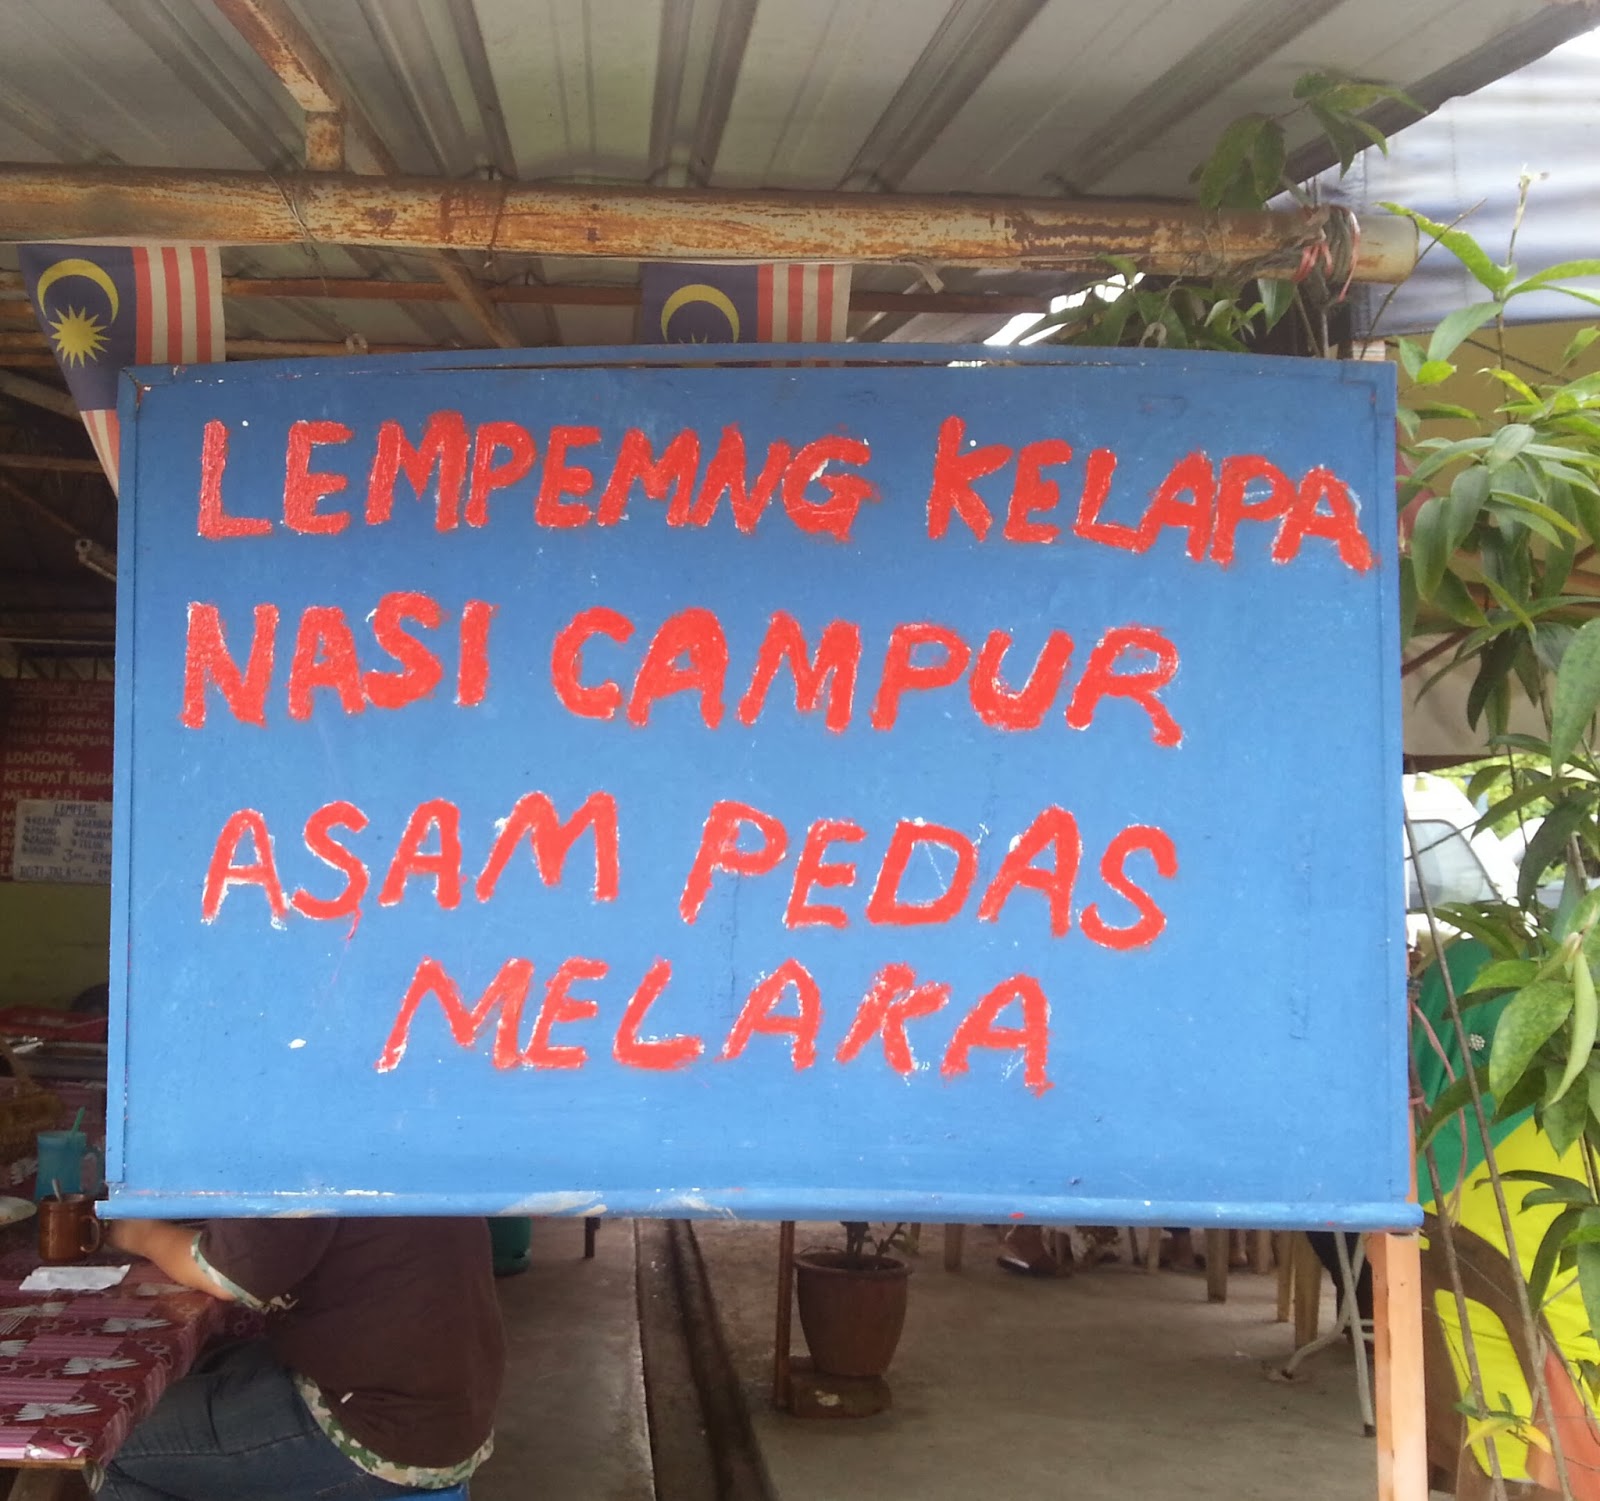 LEMPEMNG KELAPA
NASI CAMPUR
ASAM PEDAS
MELAKA
LEMAK
GORENG
NASI CAMPUR
LONTONG.
KETUPAT
LEMPENG